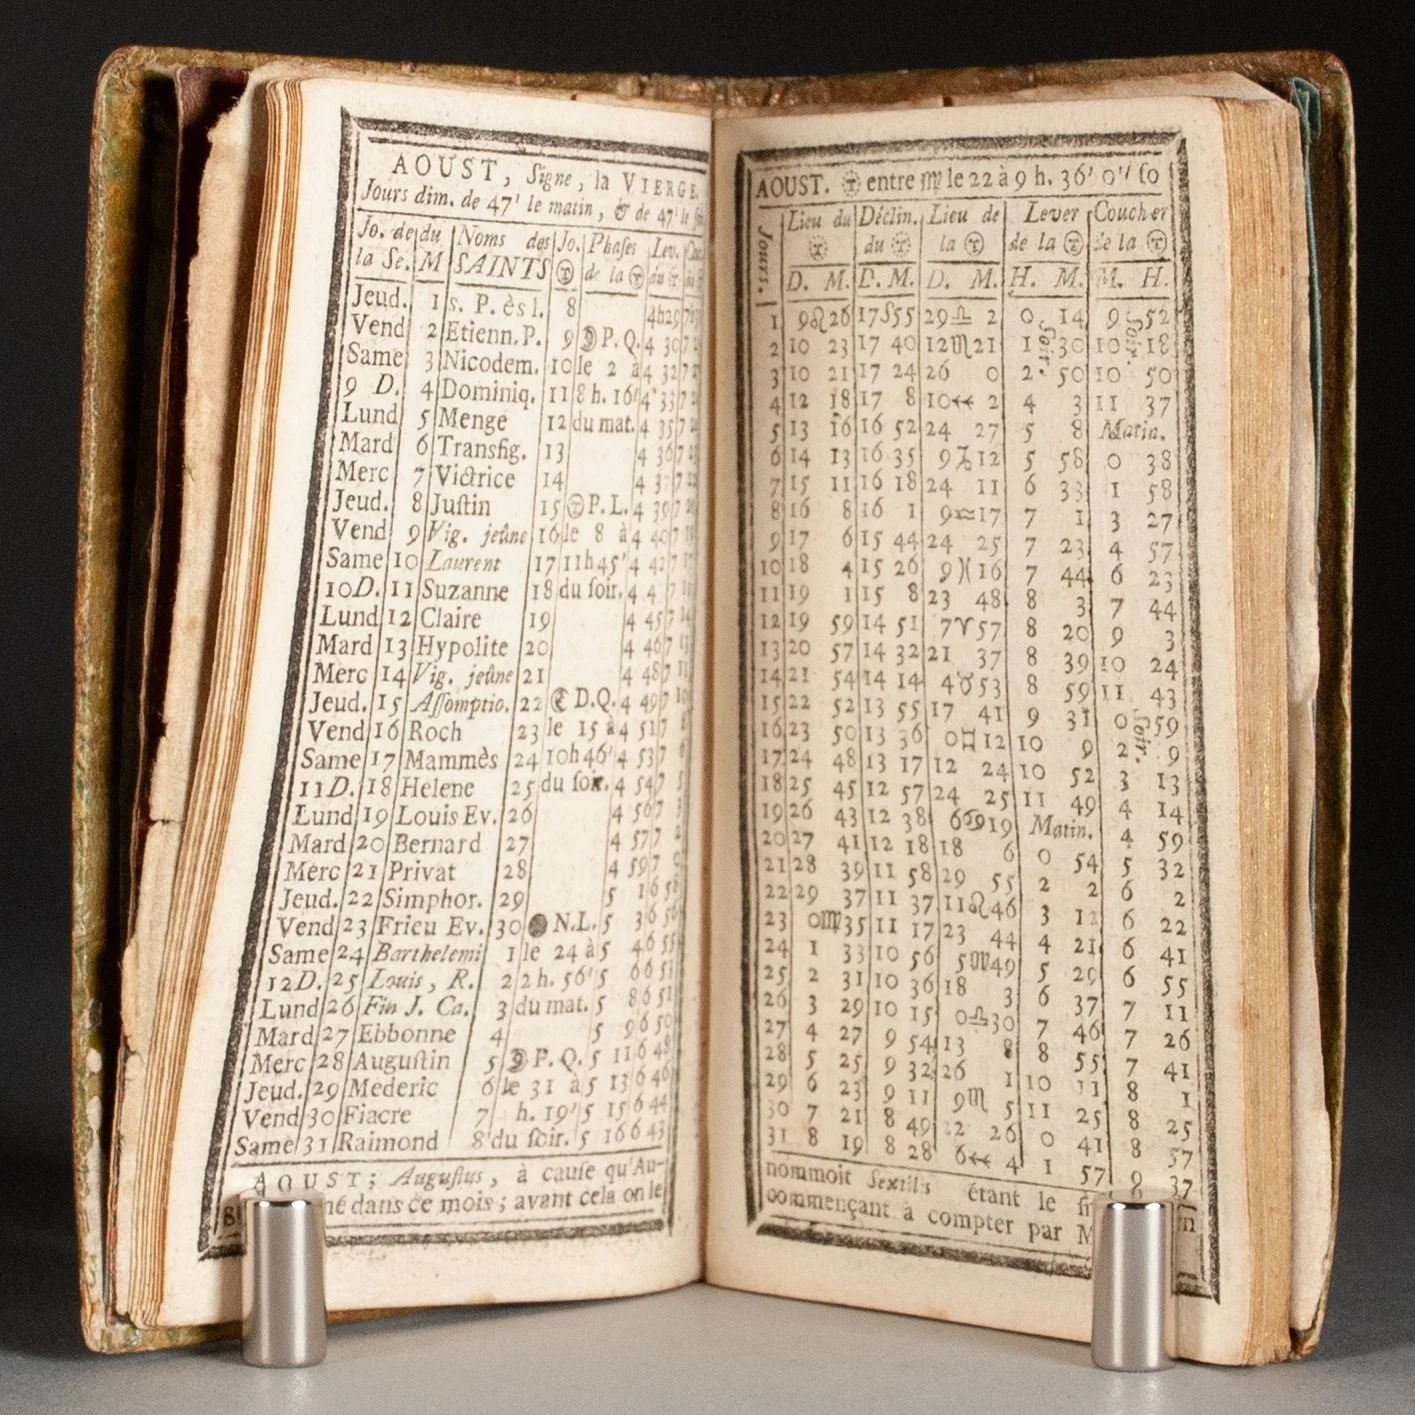 AOUST, Signe, la VIERGE.
Jours dim. de 47' le matin, & de 47' le
Jo. de du Noms des Jo. Phases Lev.
la Se. M SAINTS de la du
Jeud. 1 s. P. ès l. 8 4h29
Vend 2 Etienn. P. 9 P. Q. 4 30 7
Same 3 Nicodem. 10 le 2 à 4 32 7
9 D. 4 Dominiq. 11 8 h. 16' 4 33 7
Lund 5 Menge 12 du mat. 4 35 7
Mard 6 Transfig. 13 4 36 7
Merc 7 Victrice 14 4 37 7
Jeud. 8 Justin 15 P. L. 4 39 7
Vend 9 Vig. jeûne 16 le 8 à 4 40 7
Same 10 Laurent 17 11h45' 4 42 7
10 D. 11 Suzanne 18 du soir. 4 4 7
Lund 12 Claire 19 4 45 7
Mard 13 Hypolite 20 4 46 7
Merc 14 Vig. jeûne 21 4 48 7
Jeud. 15 Assomptio. 22 D. Q. 4 49 7
Vend 16 Roch 23 le 15 à 4 51 7
Same 17 Mammès 24 10h46' 4 53 7
11 D. 18 Helene 25 du soir. 4 54 7 5
Lund 19 Louis Ev. 26 4 56 7 3
Mard 20 Bernard 27 4 57 7 2
Merc 21 Privat 28 4 59 7 0
Jeud. 22 Simphor. 29 5 1 6 58
Vend 23 Frieu Ev. 30 N. L. 5 3 6 56
Same 24 Barthelemi 1 le 24 à 5 4 6 55
12 D. 25 Louis, R. 2 2h. 56' 5 6 6 53
Lund 26 Fin J. Ca. 3 du mat. 5 8 6 51
Mard 27 Ebbonne 4 5 9 6 50
Merc 28 Augustin 5 P. Q. 5 11 6 48
Jeud. 29 Mederic 6 le 31 à 5 13 6 46
Vend 30 Fiacre 7 h. 19' 5 15 6 44
Same 31 Raimond 8 du soir. 5 16 6 43
AOUST; Augustus, à cause qu'Au-
né dans ce mois; avant cela on le
AOUST. entre ♍ le 22 à 9 h. 36' 0'' so
Jours. Lieu du Déclin. Lieu de Lever Coucher
du la de la de la
D. M. D. M. D. M. H. M. M. H.
1 9♌26 17S55 29♎ 2 0 14 9 52
Soir. Soir.
2 10 23 17 40 12♏21 1 30 10 18
3 10 21 17 24 26 0 2 50 10 50
4 12 18 17 8 10♐ 2 4 3 11 37
5 13 16 16 52 24 27 5 8 Matin.
6 14 13 16 35 9♑12 5 58 0 38
7 15 11 16 18 24 11 6 33 1 58
8 16 8 16 1 9♒17 7 1 3 27
9 17 6 15 44 24 25 7 23 4 57
10 18 4 15 26 9♓16 7 44 6 23
11 19 1 15 8 23 48 8 3 7 44
12 19 59 14 51 7♈57 8 20 9 3
13 20 57 14 32 21 37 8 39 10 24
14 21 54 14 14 4♉53 8 59 11 43
15 22 52 13 55 17 41 9 31 0 59
Soir.
16 23 50 13 36 0♊12 10 9 2 9
17 24 48 13 17 12 24 10 52 3 13
18 25 45 12 57 24 25 11 49 4 14
19 26 43 12 38 6♋19 Matin. 4 59
20 27 41 12 18 18 6 0 54 5 32
21 28 39 11 58 29 55 2 2 6 2
22 29 37 11 37 11♌46 3 12 6 22
23 0♍35 11 17 23 44 4 21 6 41
24 1 33 10 56 5♍49 5 29 6 55
25 2 31 10 36 18 3 6 37 7 11
26 3 29 10 15 0♎30 7 46 7 26
27 4 27 9 54 13 8 8 55 7 41
28 5 25 9 32 26 1 10 11 8 1
29 6 23 9 11 9♏ 5 11 25 8 25
30 7 21 8 49 22 26 0 41 8 57
31 8 19 8 28 6♐ 4 1 57 9 37
nommoit Sextilis étant le
commençant à compter par